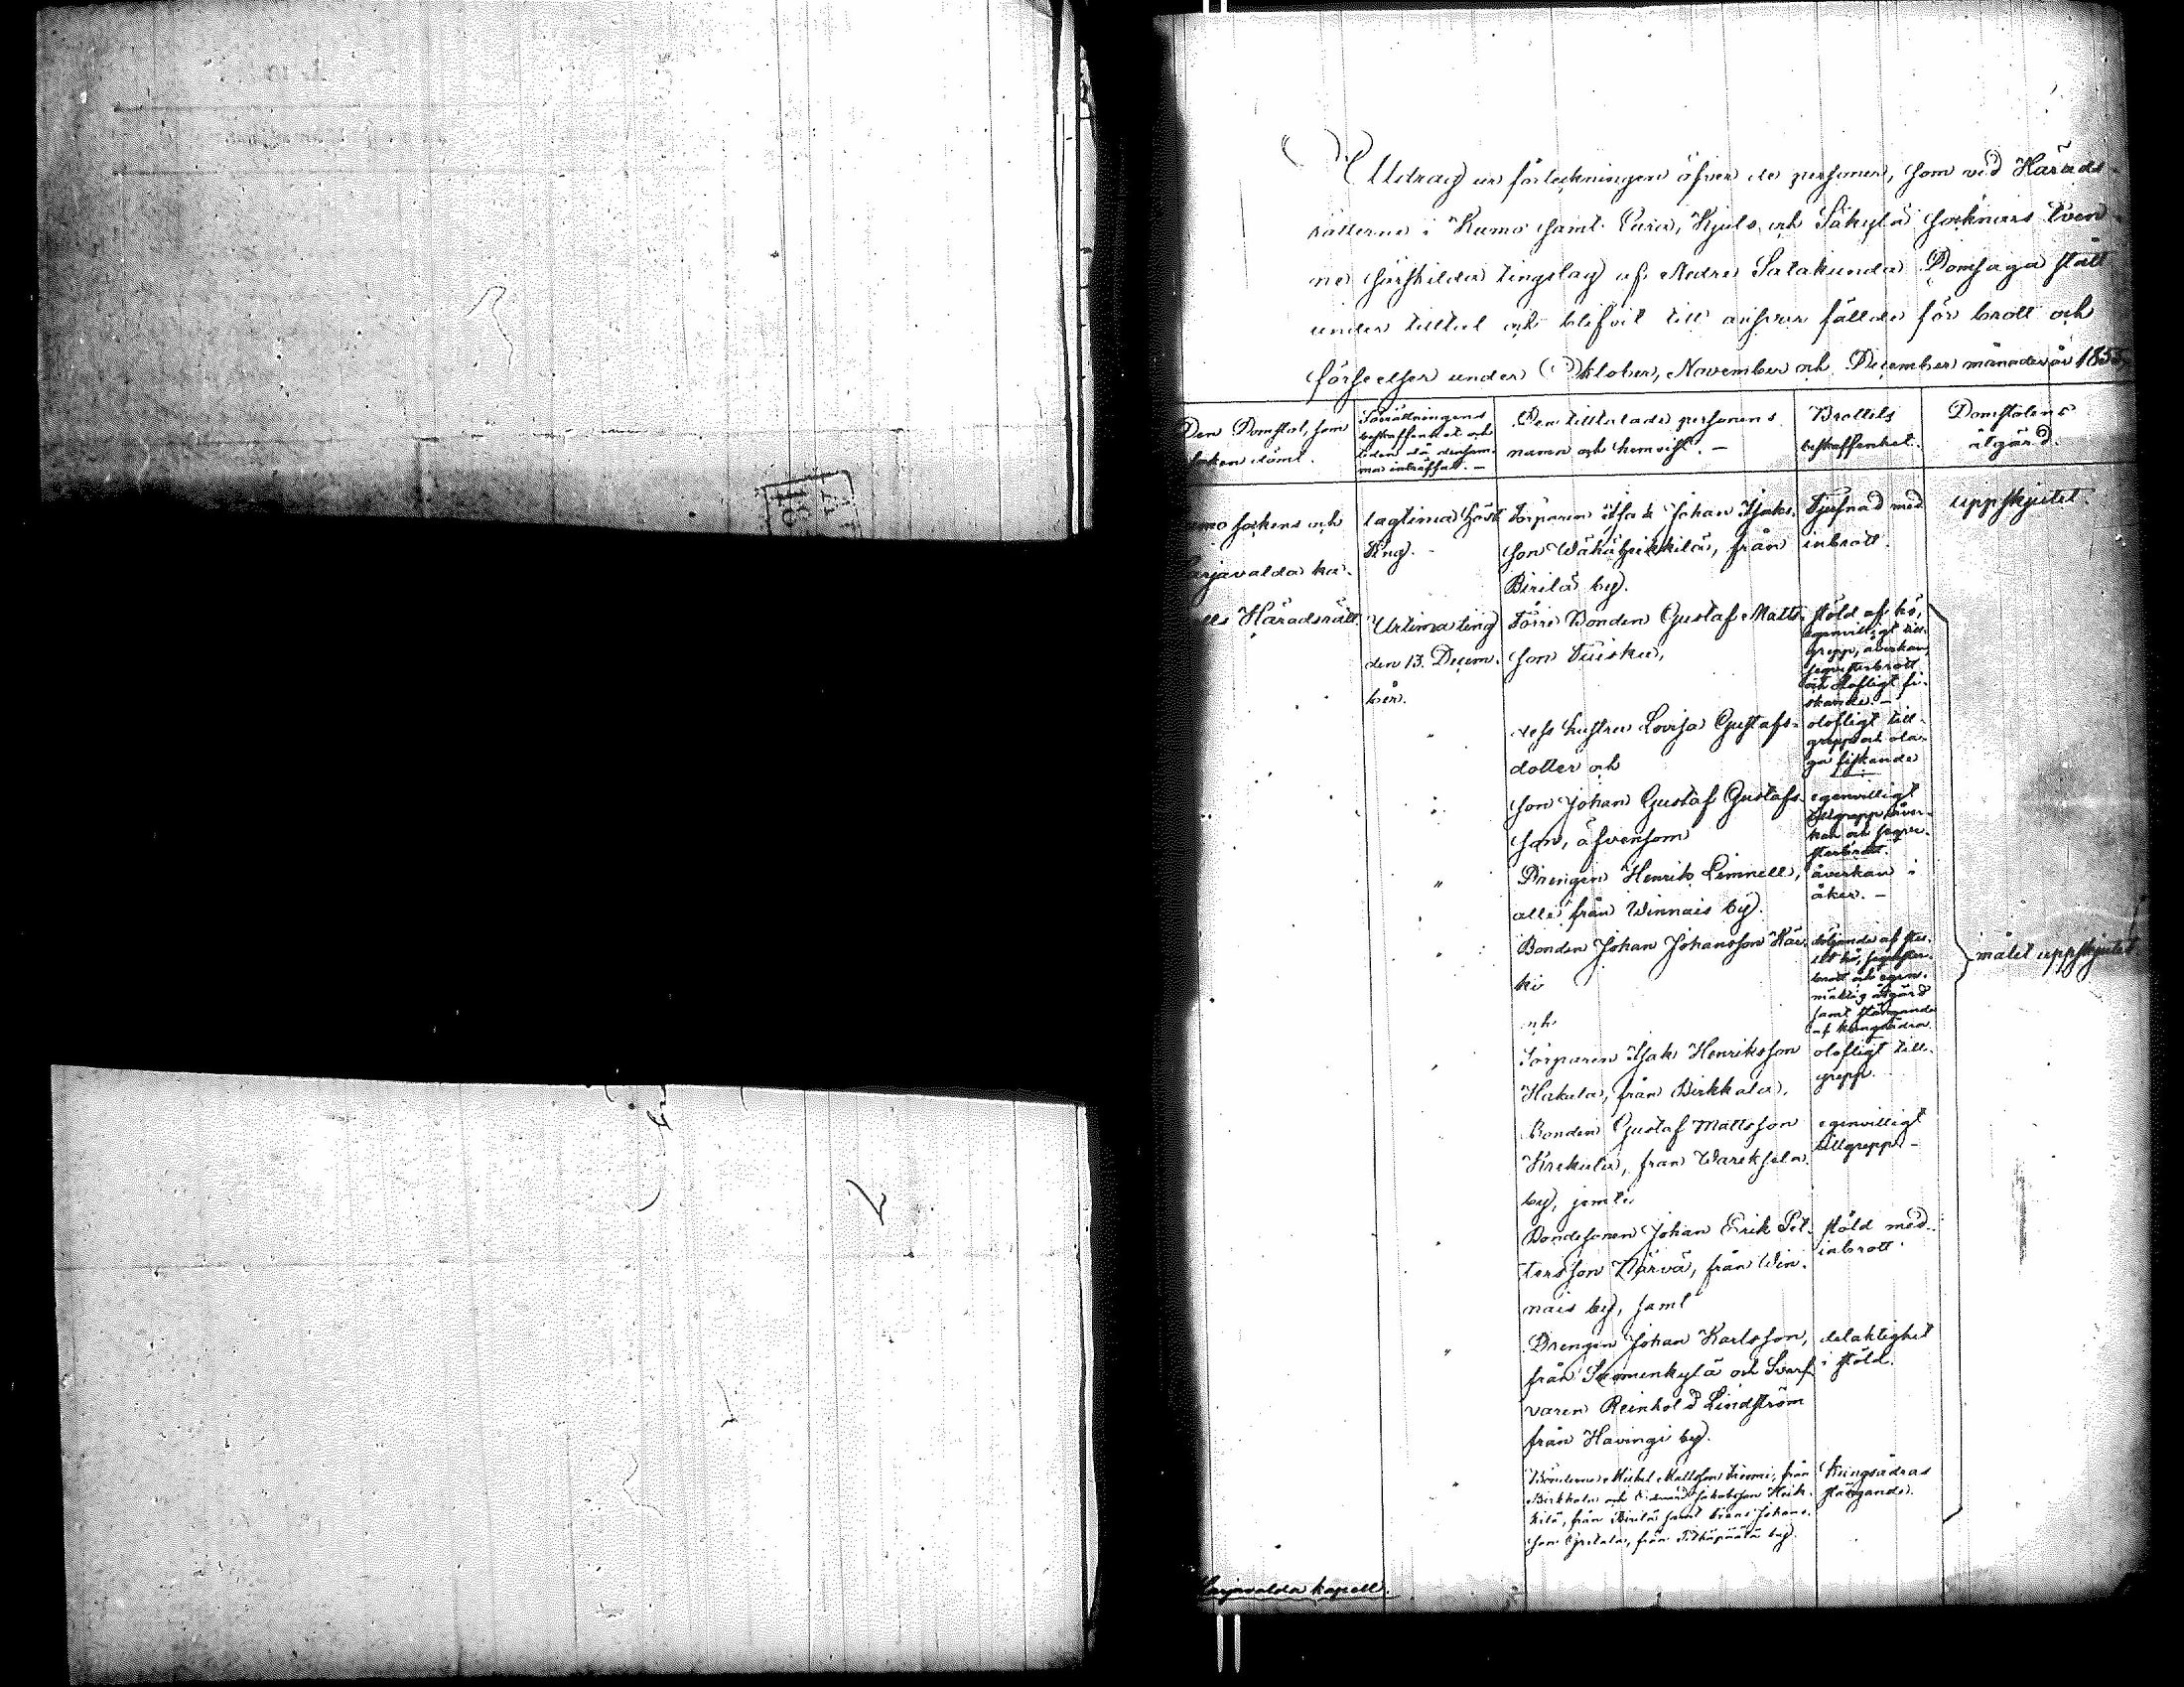 Utdrag ur förteckningen öfver de personer, som vid Härads-
rätterne i Kumo samt Eura, Kjulo och Säkylä socknars tven-
ne särskilda tingslag af Nedre Satakunda Domsaga stått
under tilltal och blifvit till ansvar fällde för brott och
förseelser under Oktober, November och December månader år 1855.
Den Domstol, som
saken dömt.
Förrättningens
beskaffenhet och
tiden då densam-
ma inträffat. —
Den tilltalade personens
namn och hemvist. —
Brottets
beskaffenhet.
Domstolens
åtgärd.
umo sockens och
arjavalda ka-
ells Häradsrätt
lagtima Höst
ting. -
Torparen Isak Johan Isaks-
son Wähäpikkilä, från
Pirilä by.
Tjufnad med
inbrott.
uppskjutet.
Urtima ting
den 13. Decem-
ber.
Förre Bonden Gustaf Matts-
son Tuisku,
stöld af hö,
egenvilligt till-
grepp, åverkan,
och olofligt fi-
skande. -
" dess hustru Lovisa Gustafs-
dotter och
olofligt till-
grepp och ola-
ga fiskande
son Johan Gustaf Gustafs-
son, äfvensom
egenvilligt
tillgrepp, åver-
kan och
" Drengen Henrik Limnell,
alle från Winnais by.
åverkan i
åker. -
" Bonden Johan Johansson Här-
ki
och
döljande af stu-
let hö,
brott och egen-
mäktig åtgärd
samt stängande
af kungsådra.
" Torparen Isak Henriksson
Hakula, från Pirkkala,
olofligt till-
grepp.
Bonden Gustaf Mattsson
Krekula, från
by, jemte
egenvilligt
tillgrepp -
" Bondesonen Johan Erik Pet-
tersson Närvä, från Win-
nais by, samt
stöld med
inbrott.
" Drengen Johan Karlsson,
från Suomenkylä och Svarf-
varen Reinhold Lindström
från Havingi by.
delaktighet
i stöld.
" Bönderne Michel Mattsson Kiemi, från
Pirkkala och Jakobsson Heik-
kilä, från Pirilä samt Frans Johans-
son från Pitkäpäälä by.
Kungsådras
stängande.
målet uppskjutet
Harjavalda kapell.